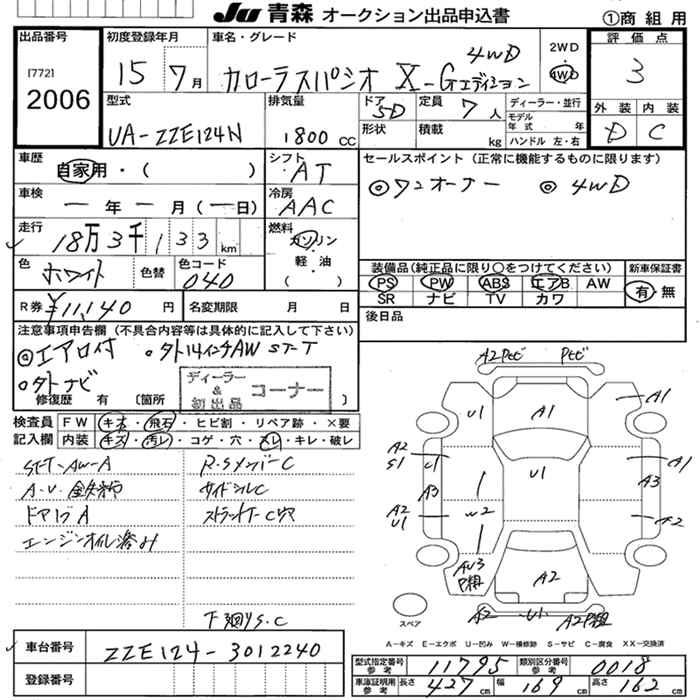 JU 青森 オークション出品申込書 ①商 組 用
出品番号
[772]
2006
初度登録年月
15年 7月
車名・グレード
カローラスパシオ X-Gエディション 4WD
2WD
4WD
評価点
3
型式
UA-ZZE124N
排気量
1800 CC
ドア
5D
形状
定員 7 人
積載 kg
ディーラー・並行
モデル年式 年
ハンドル 左・右
外装 内装
D C
車歴
自家用・( )
シフト
AT
セールスポイント(正常に機能するものに限ります)
◎ワンオーナー ◎4WD
車検
ー年ー月(ー日)
冷房
AAC
走行
18万3千133 km
燃料
ガソリン
軽・油
( )
色
ホワイト
色替
色コード
040
装備品(純正品に限り○をつけてください)
新車保証書
PS PW ABS エアB AW
SR ナビ TV カワ
有・無
R券 ¥11,140 円
名変期限 月 日
後日品
注意事項申告欄(不具合内容等は具体的に記入して下さい)
◎エアロ付 ・外14インチAW ST-T
○外ナビ
ディーラー & 初出品 コーナー
修復歴 有 〔箇所 〕
検査員記入欄
FW キズ・飛石・ヒビ割・リペア跡・×要
内装 キズ・汚レ・コゲ・穴・スレ・キレ・破レ
ST-T-AW-A R・SメンバーC
サイドシルC
ドア A ストラットT-C
エンジンオイル滲み
下廻りS.C
A2 Pセビ Pセビ
U1 A1 A1
A2 S1 U1 U1 A1
A3 A3
A2 U1 W2
AU3 A2
A2 U1
スペア
A-キズ E-エクボ U-凹み W-補修跡 S-サビ C-腐食 XX-交換済
車台番号
ZZE124-3012240
登録番号
型式指定番号 参考 11795
類別区分番号 参考 0018
車庫証明用 参考 長さ 427 cm 幅 169 cm 高さ 162 cm